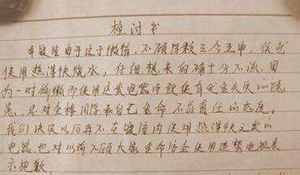 检讨书
本寝室由于处于懒惰，不顾院系三令五申，仅以
使用热得快烧水，仔细想来的确十分不该，因
为一时偷懒而使用这类电器导致有安全失误的隐
患，是对全楼同学和自己生命不负责任的态度。
我们决定以后再不在寝室内使用热得快之类的
电器，也对以前不顾大家生命安全使用违禁电器表
示抱歉。